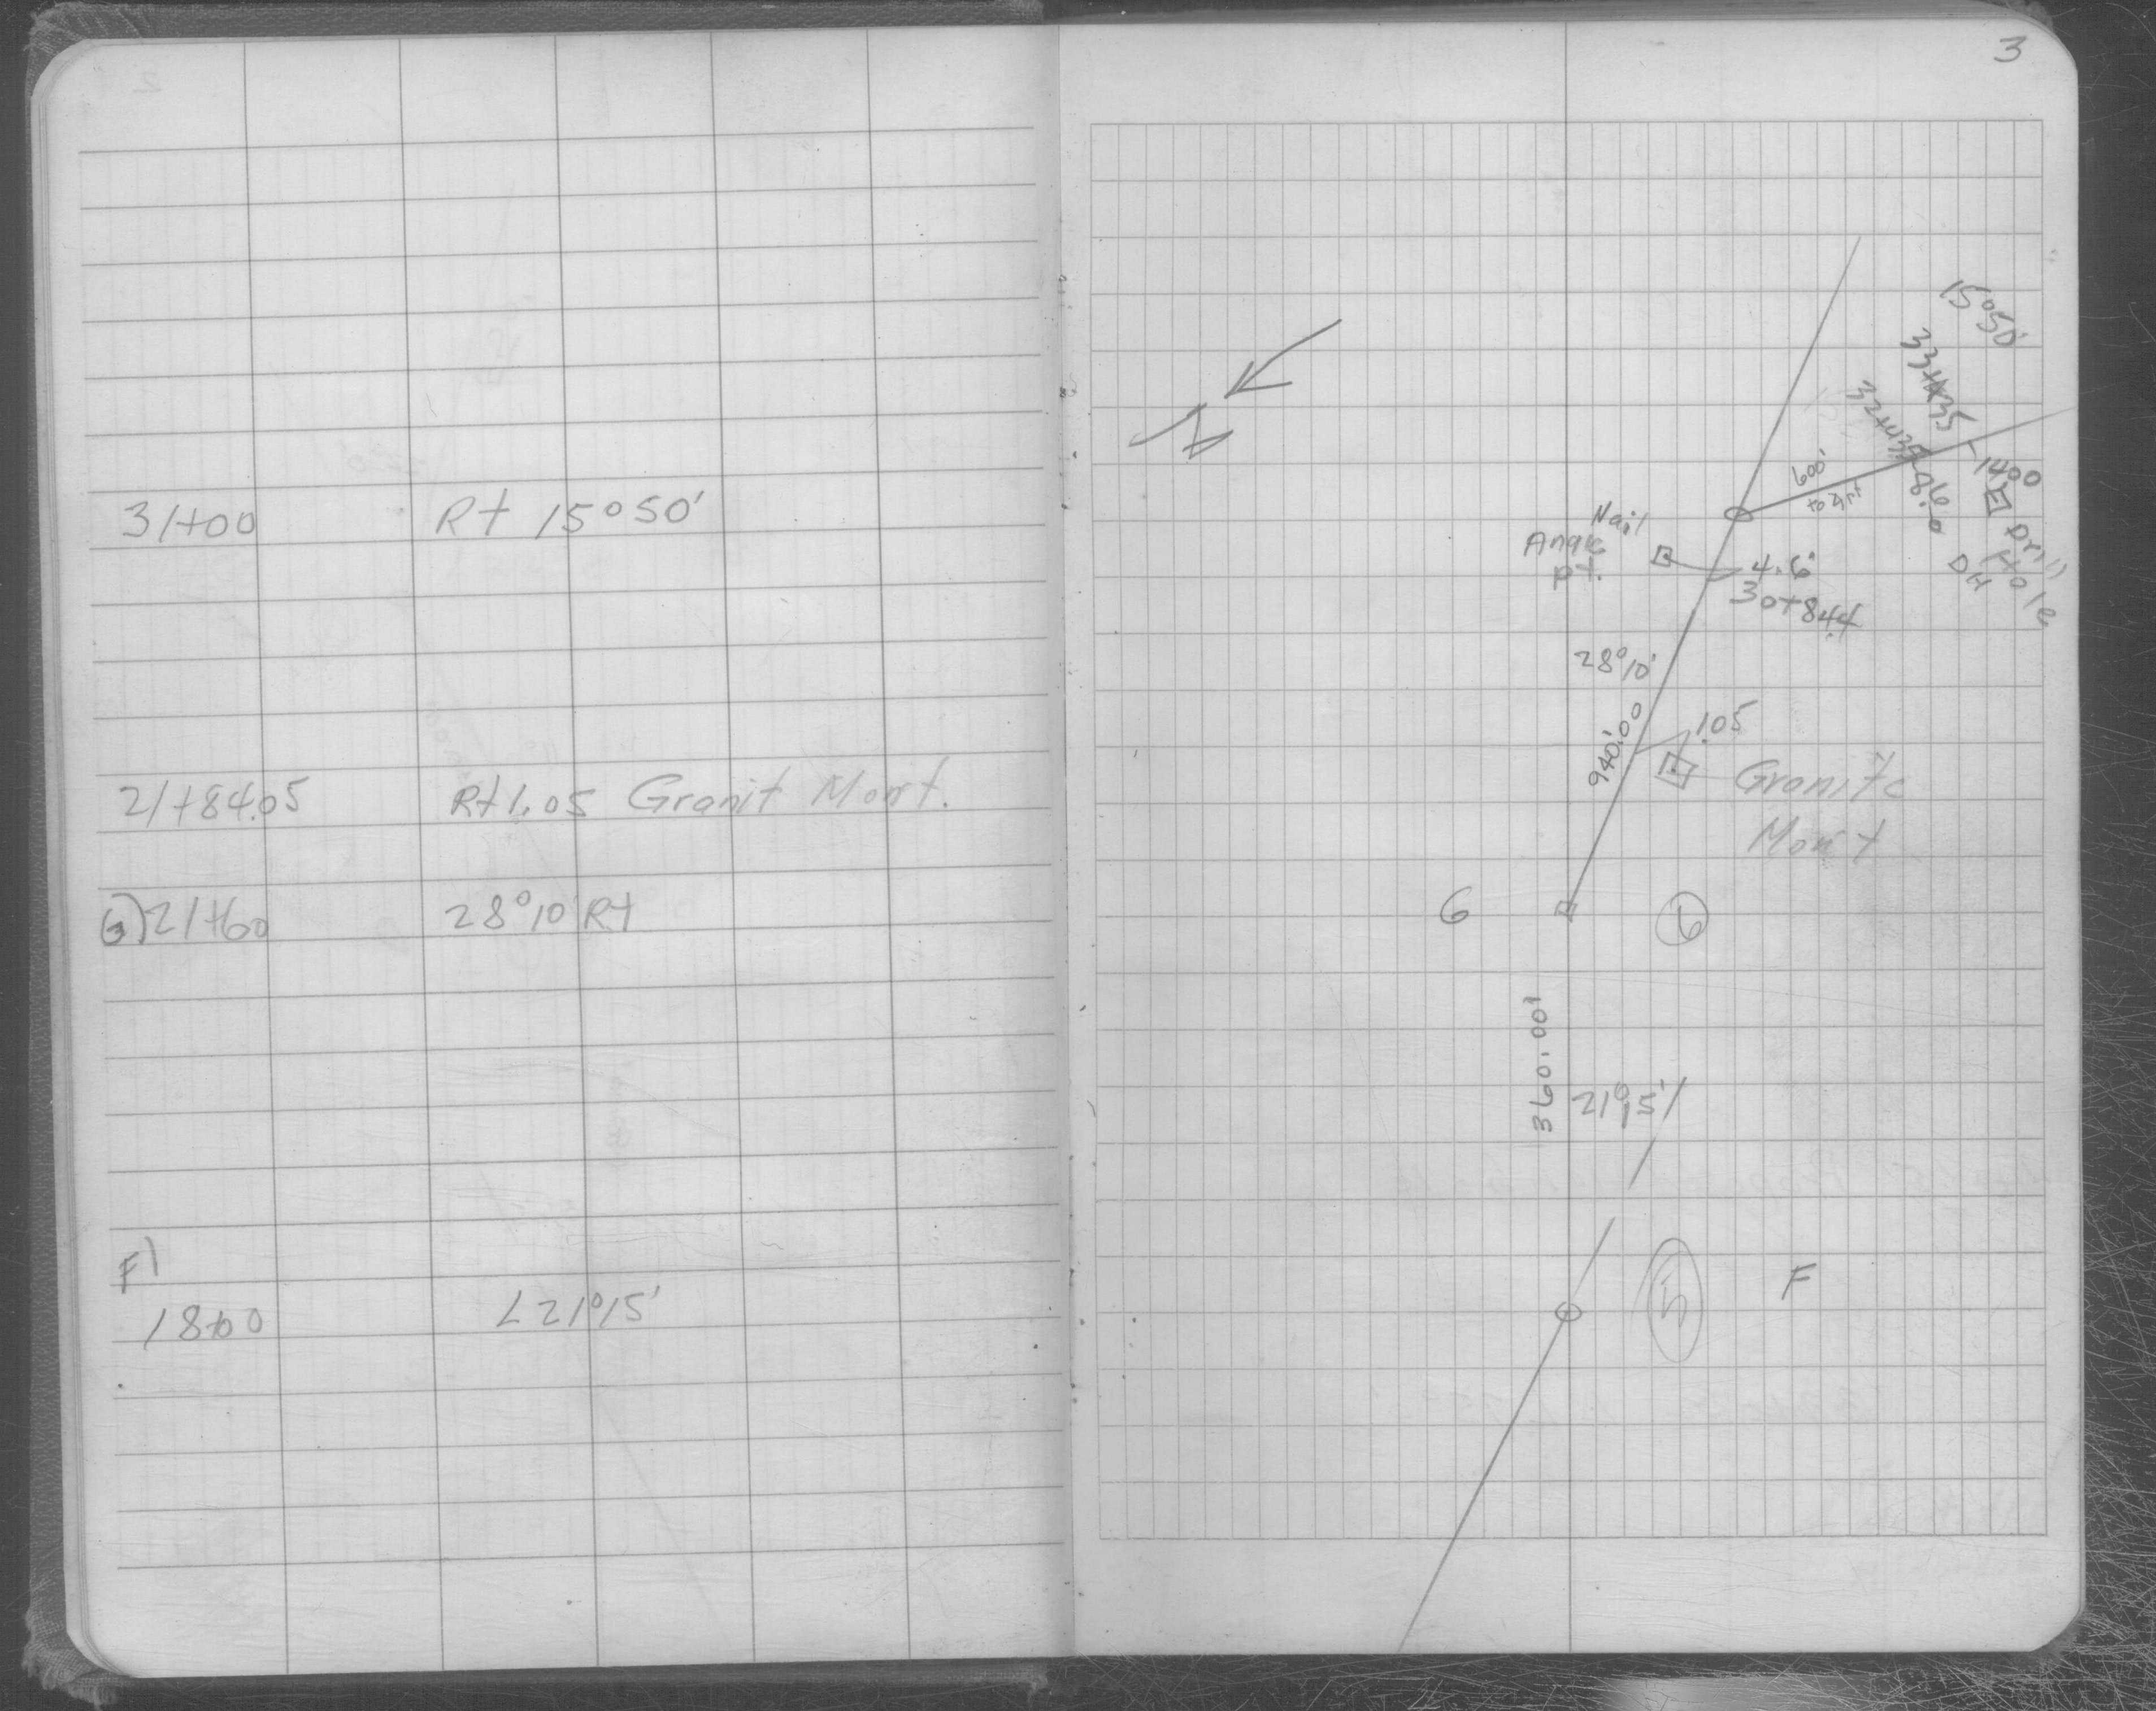 3
31+00 Rt 15°50'
21+84.05 Rt 1.05 Granit Mon't.
G) 21+60 28°10' Rt
F)
18+00 L 21°15'
15°50'
33+35
600'
14.00
Drill
Hole
DH
Nail
Angle
pt.
4.6'
30+84.4
28°10'
940.00'
1.05
Granite
Mon't
G
6
360.00'
21°15'
5
F
N